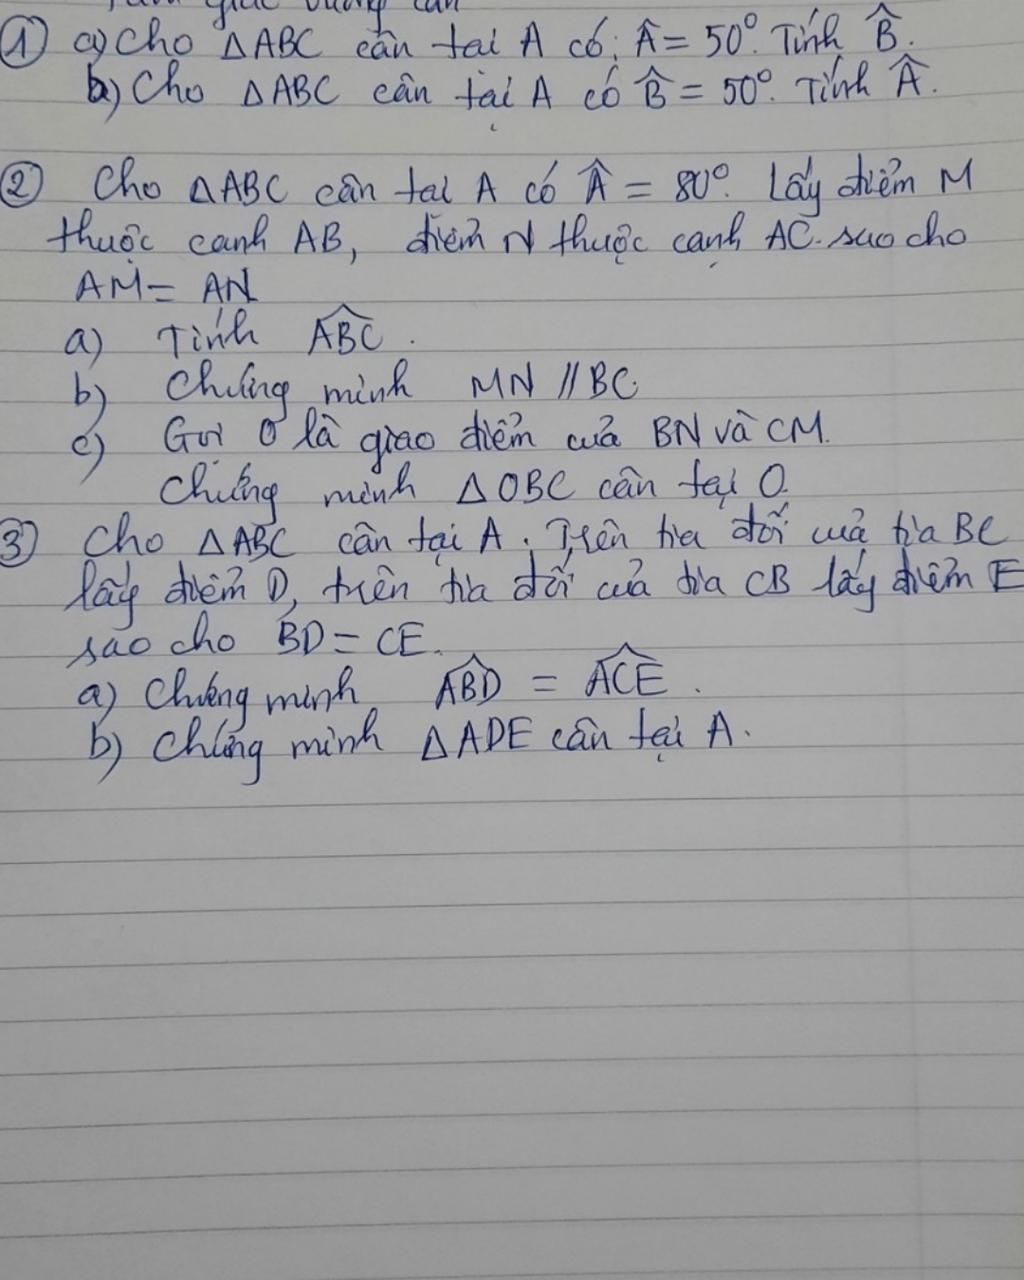 giác vuông cân
① a) Cho △ABC cân tại A có: Â = 50°. Tính B̂.
b) Cho △ABC cân tại A có B̂ = 50°. Tính Â.
② Cho △ABC cân tại A có Â = 80°. Lấy điểm M
thuộc cạnh AB, điểm N thuộc cạnh AC. sao cho
AM = AN
a) Tính \widehat{ABC}.
b) Chứng minh MN // BC
c) Gọi O là giao điểm của BN và CM.
Chứng minh △OBC cân tại O.
③ Cho △ABC cân tại A. Trên tia đối của tia BC
lấy điểm D, trên tia đối của tia CB lấy điểm E
sao cho BD = CE.
a) Chứng minh \widehat{ABD} = \widehat{ACE}.
b) Chứng minh △ADE cân tại A.